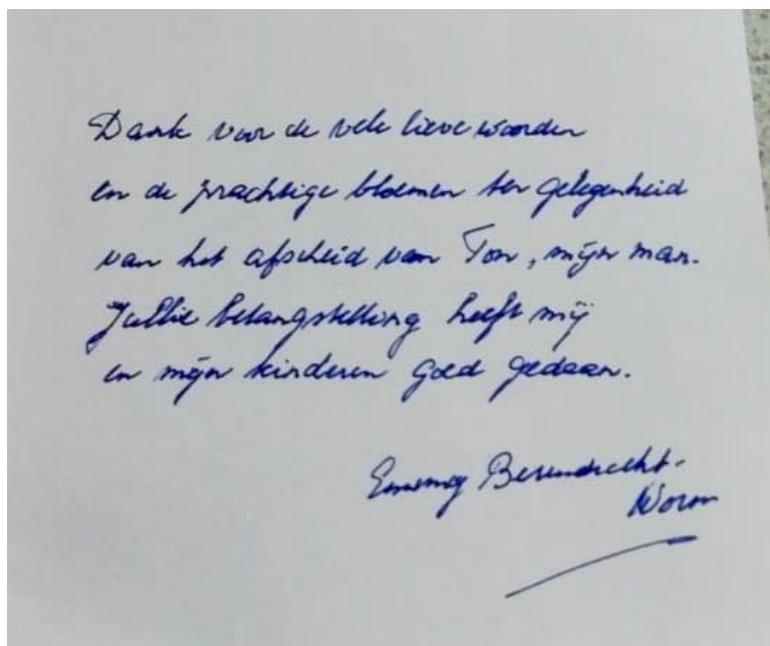 Dank voor de vele lieve woorden
en de prachtige bloemen ter gelegenheid
van het afscheid van Ton, mijn man.
Jullie belangstelling heeft mij
en mijn kinderen goed gedaan.
Emmy Berendrecht-
Worm